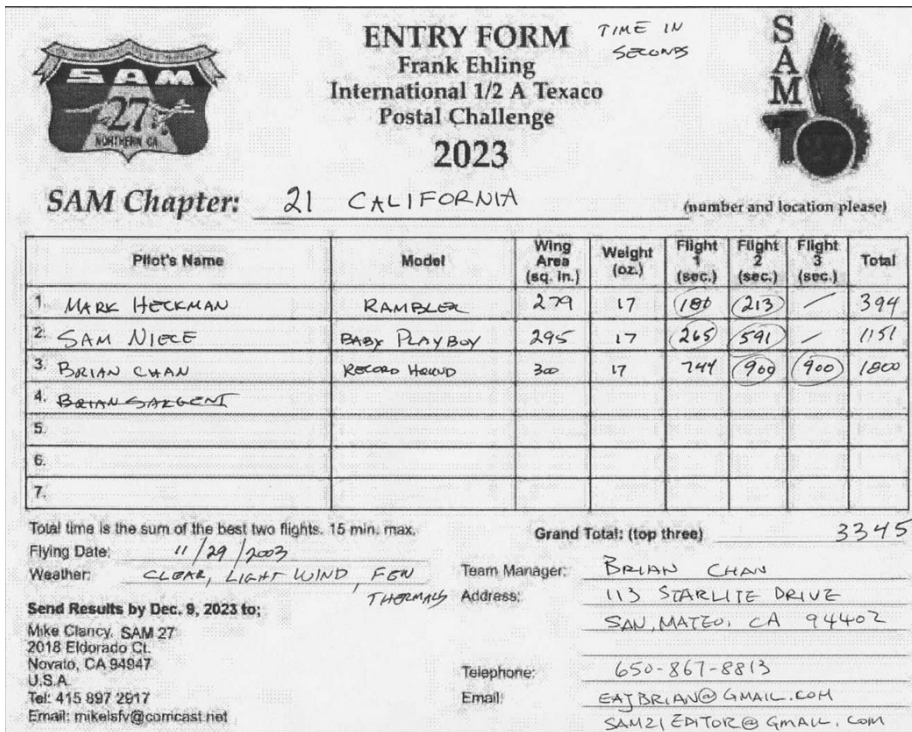 SAM
27
NORTHERN CA
ENTRY FORM
Frank Ehling
International 1/2 A Texaco
Postal Challenge
2023
TIME IN
SECONDS
SAM
SAM Chapter: 21 CALIFORNIA (number and location please)
Pilot's Name Model Wing Area (sq. in.) Weight (oz.) Flight 1 (sec.) Flight 2 (sec.) Flight 3 (sec.) Total
1. MARK HECKMAN RAMBLER 279 17 180 213 / 394
2. SAM NIECE BABY PLAYBOY 295 17 265 591 / 1151
3. BRIAN CHAN RECORD HOUND 300 17 744 900 900 1800
4. BRIAN SARGENT
5.
6.
7.
Total time is the sum of the best two flights. 15 min. max.
Grand Total: (top three) 3345
Flying Date: 11/29/2003
Weather: CLEAR, LIGHT WIND, FEW
THERMALS
Send Results by Dec. 9, 2023 to:
Mike Clancy. SAM 27
2018 Eldorado Ct.
Novato, CA 94947
U.S.A.
Tel: 415 897 2917
Email: mikelsfv@comcast.net
Team Manager: BRIAN CHAN
Address: 113 STARLITE DRIVE
SAN, MATEO, CA 94402
Telephone: 650-867-8813
Email: EAJBRIAN@GMAIL.COM
SAM21EDITOR@GMAIL.COM